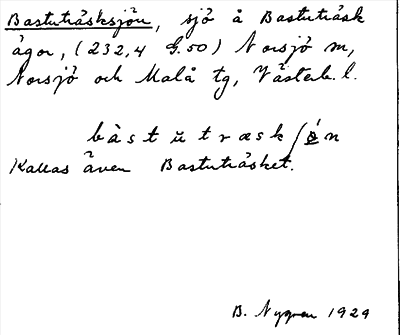 Bastuträsksjön, sjö å Bastuträsk
ägor, (232,4 G.50) Norsjö sn,
Norsjö och Malå tg, Västerb. l.
bàstŭtræsk/ǿn
Kallas även Bastuträsket.
B. Nygren 1929